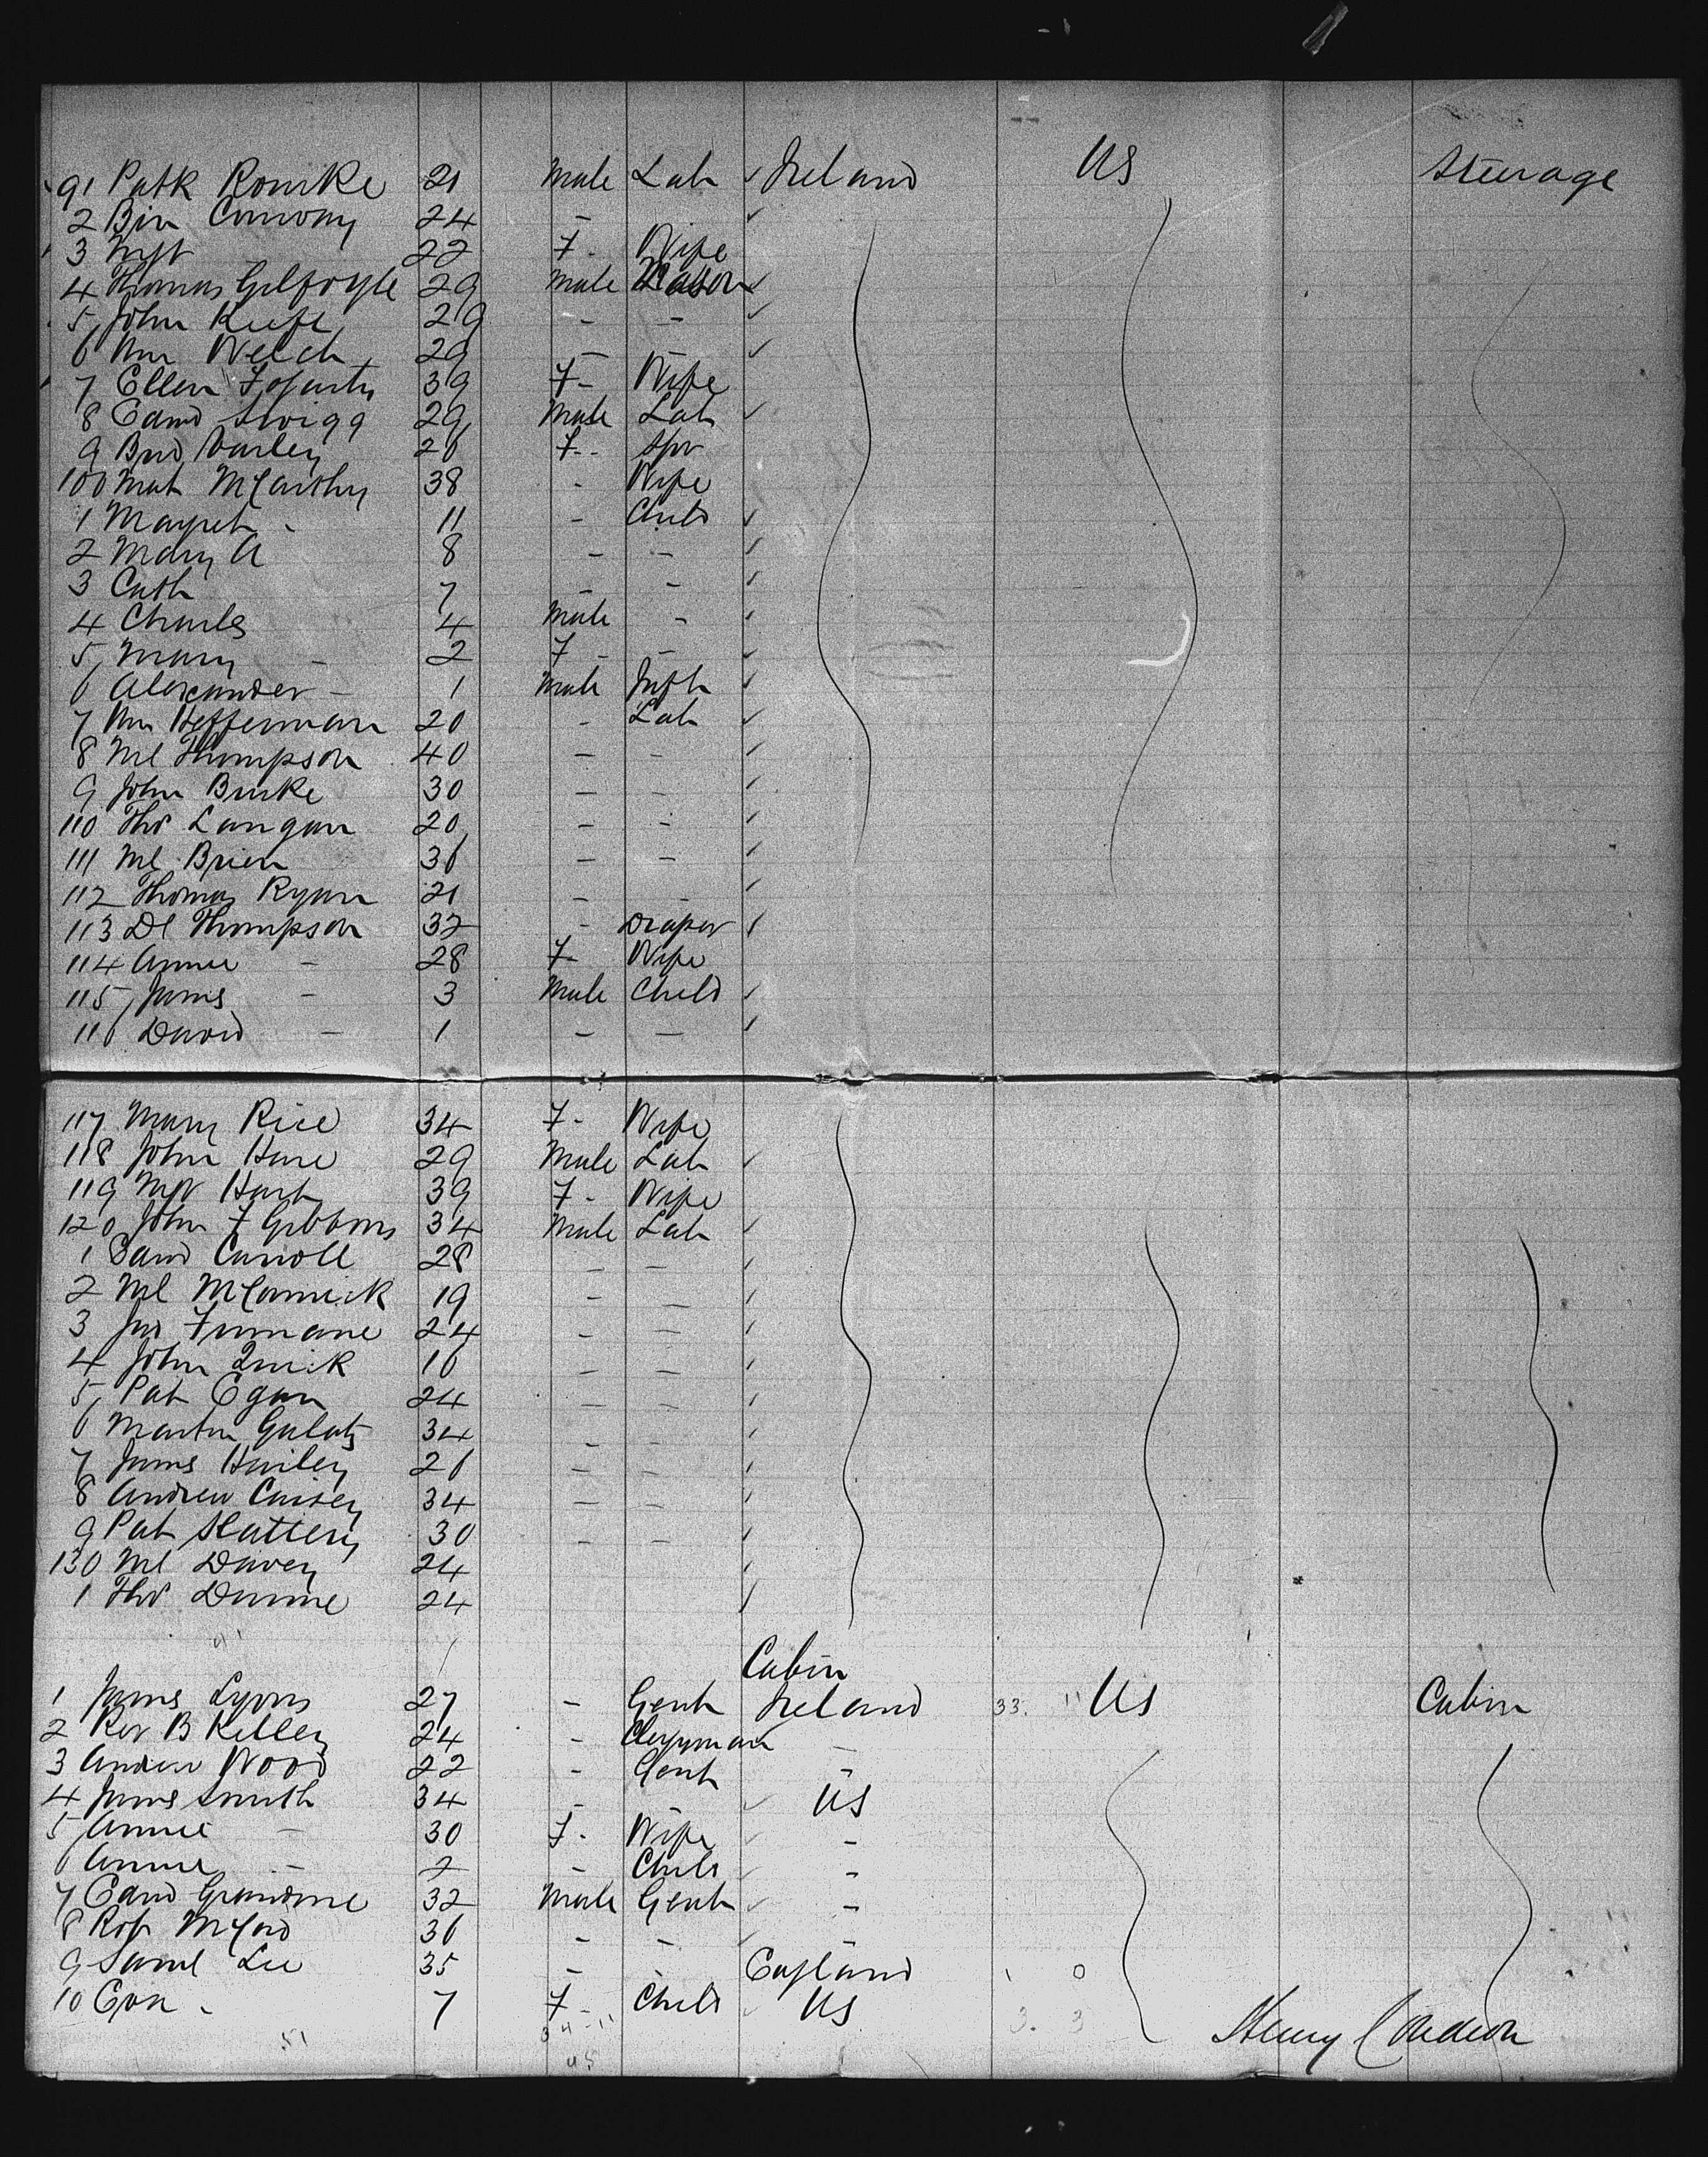 91 Patk Rourke 21 Male Lab Ireland US Steerage
2 Conway 24 -
3 22 F- Wife
4 Thomas Gilfoyle 29 Male Mason
5 John Keefe 29 - -
6 Wm Welch 29 - -
7 Ellen Fogarty 39 F- Wife
8 Edmd Twigg 29 Male Lab
9 Brid 26 F- Spr
100 McCarthy 38 - Wife
1 Margret - 11 - Child
2 Mary A 8 - -
3 Cath 7 - -
4 Charles 4 Male -
5 Mary - 2 F - -
6 Alexander - 1 Male Inft
7 Wm Heffernan 20 - Lab
8 Ml Thompson 40 - -
9 John Burke 30 - -
110 Thos Langan 20 - -
111 Ml Brien 36 - -
112 Thomas Ryan 21 - -
113 Dl Thompson 32 - Draper
114 Annie - 28 F- Wife
115 James - 3 Male Child
116 David - 1 - -
117 Mary Rice 34 F- Wife
118 John Hare 29 Male Lab
119 39 F- Wife
120 John F Gibbons 34 Male Lab
1 Carroll 28 - -
2 Ml McCormick 19 - -
3 Jas Finnane 24 - -
4 John Quirk 16 - -
5 Pat Egan 24 - -
6 Martin 34 - -
7 James Hurley 26 - -
8 Andrew 34 - -
9 Pat Slattery 30 - -
130 Ml Davey 24
1 Thos Dunne 24
Cabin
1 James Lyons 27 - Gent Ireland US Cabin
2 Rev B Kelley 24 - Clergyman -
3 Andrew Wood 22 - Gent -
4 James Smith 34 - - US
5 Annie - 30 F- Wife -
6 Annie - 2 - Child -
7 Edmd 32 Male Gent -
8 McCord 36 - - -
9 Saml Lee 35 - - England
10 Eva - 7 F- Child US
Henry